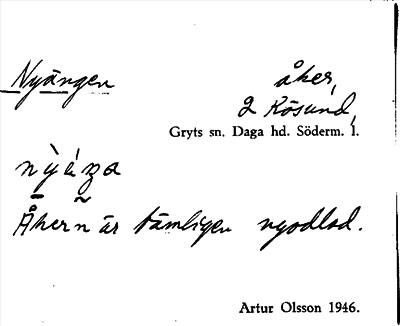 Nyängen åker,
2 Kösund,
Gryts sn. Daga hd. Söderm. l.
Åkern är tämligen nyodlad.
Artur Olsson 1946.